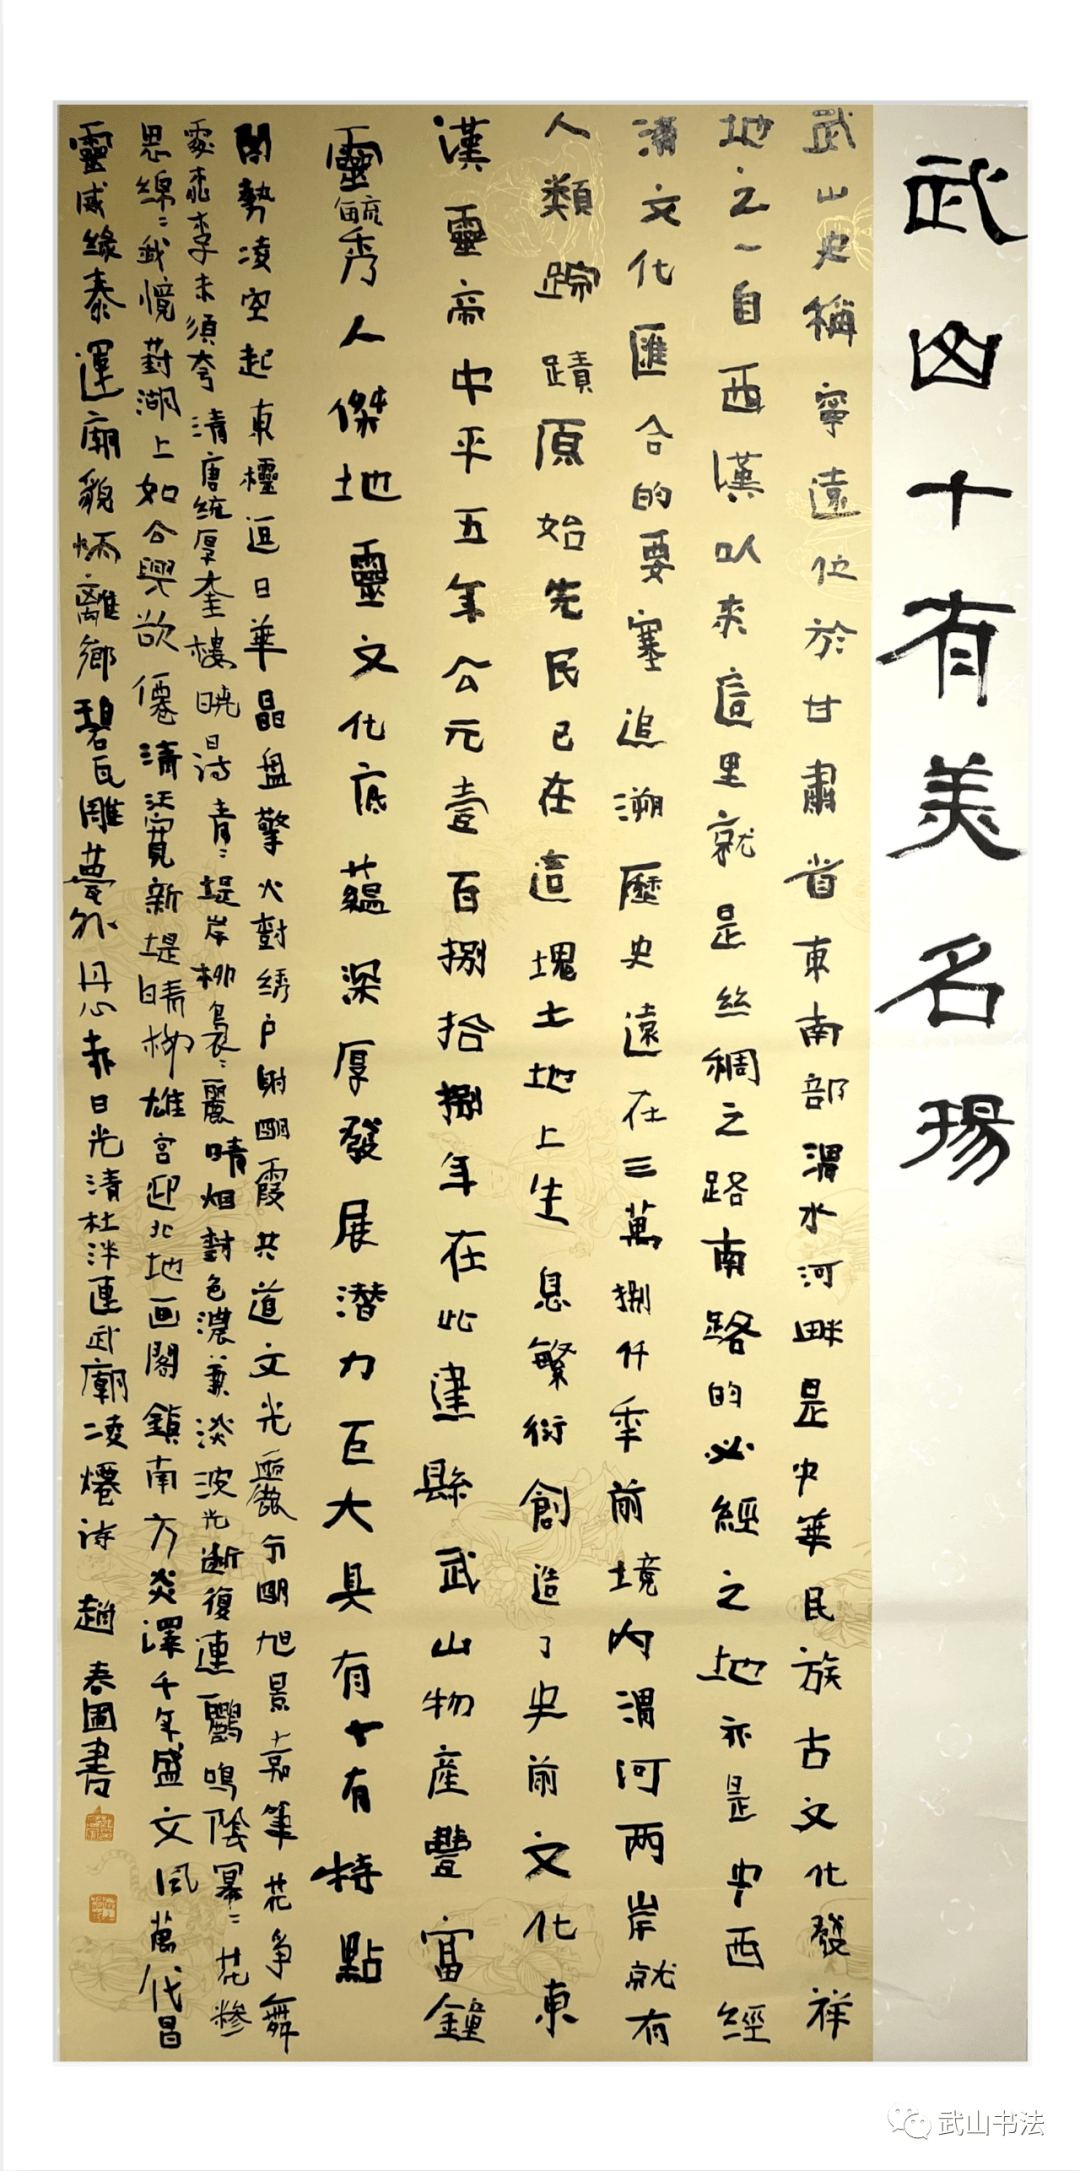 武山十有美名揚
武山史稱寧遠位於甘肅省東南部渭水河畔是中華民族古文化發祥
地之一自西漢以來這里就是絲綢之路南路的必經之地亦是中西經
濟文化匯合的要塞追溯歷史遠在三萬捌仟年前境内渭河两岸就有
人類踪蹟原始先民已在這塊土地上生息繁衍創造了史前文化東
漢靈帝中平五年公元壹百捌拾捌年在此建縣武山物産豐富鐘
靈毓秀人傑地靈文化底蘊深厚發展潜力巨大具有十有特點
閣勢凌空起東櫺逗日華晶盤擎火對綉户射明霞共道文光麗令明旭景嘉筆花争舞
處桃李未須夸清唐統厚奎樓曉日詩青二堤岸柳裊二麗晴烟封色濃兼淡波光逝復連鸝鳴陰冪二花糝
思綿二我憶葑湖上如今興欲僊清江寛新堤晴柳雄宫迎北地画閣鎮南方炎澤千年盛文風萬代昌
靈威緣泰運廟貌炳離鄉碧瓦雕甍外丹心赤日光清杜泮連武廟凌煙诗 趙春圃書
武山书法